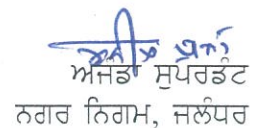 ਅਜੰਡਾ ਸੁਪਰਡੰਟ
ਨਗਰ ਨਿਗਮ, ਜਲੰਧਰ